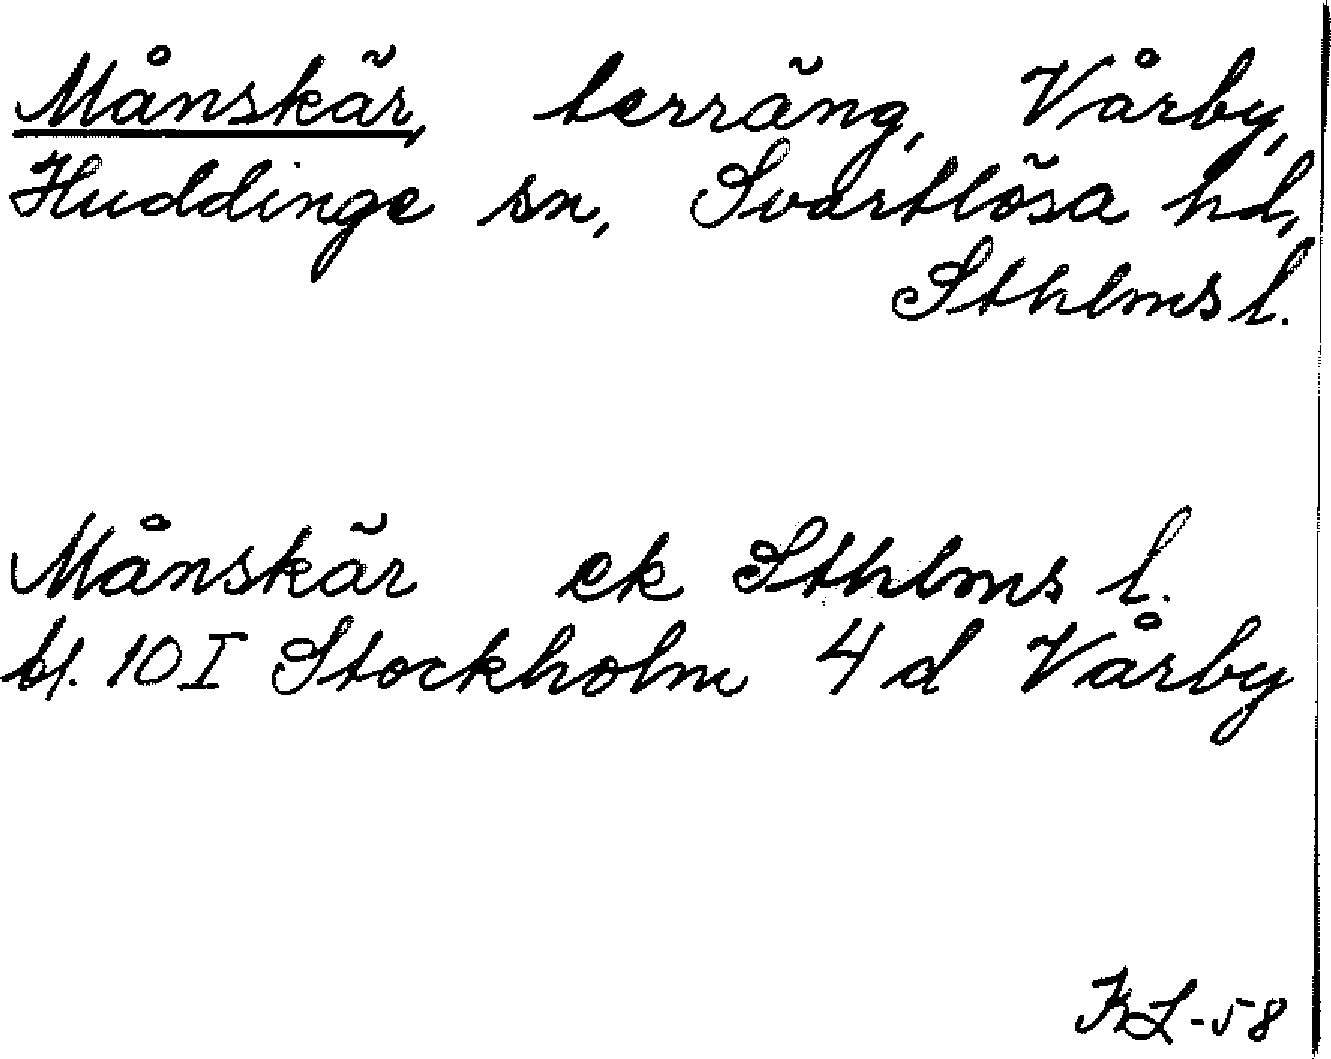 Månskär, terräng, Vårby,
Huddinge sn, Svartlösa hd,
Sthlms l.
Månskär ek Sthlms l.
bl. 10 I Stockholm 4 d Vårby
KL-58